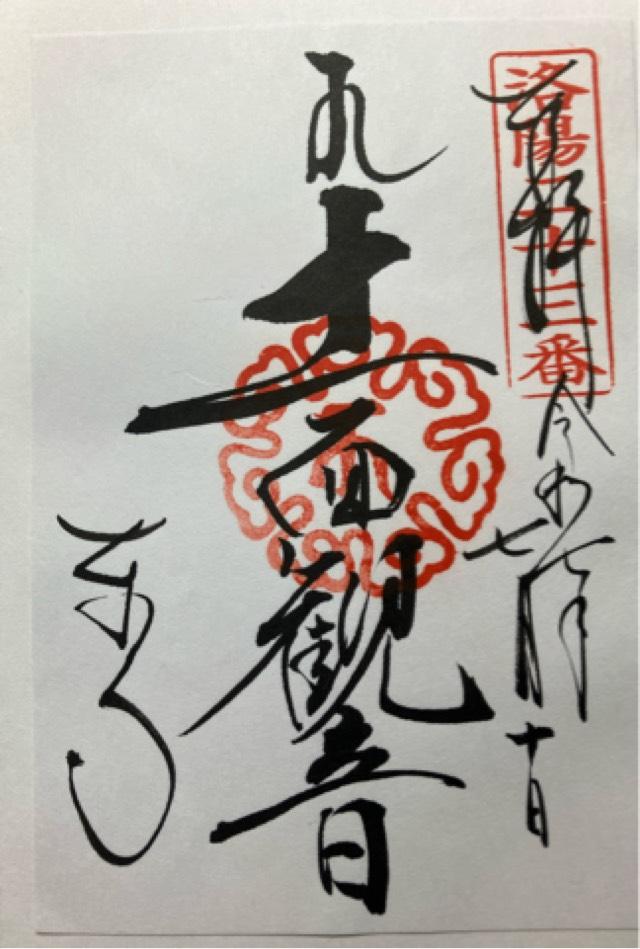 洛陽二十三番
奉拝 令和七年
七月十日
十一面観音
東寺